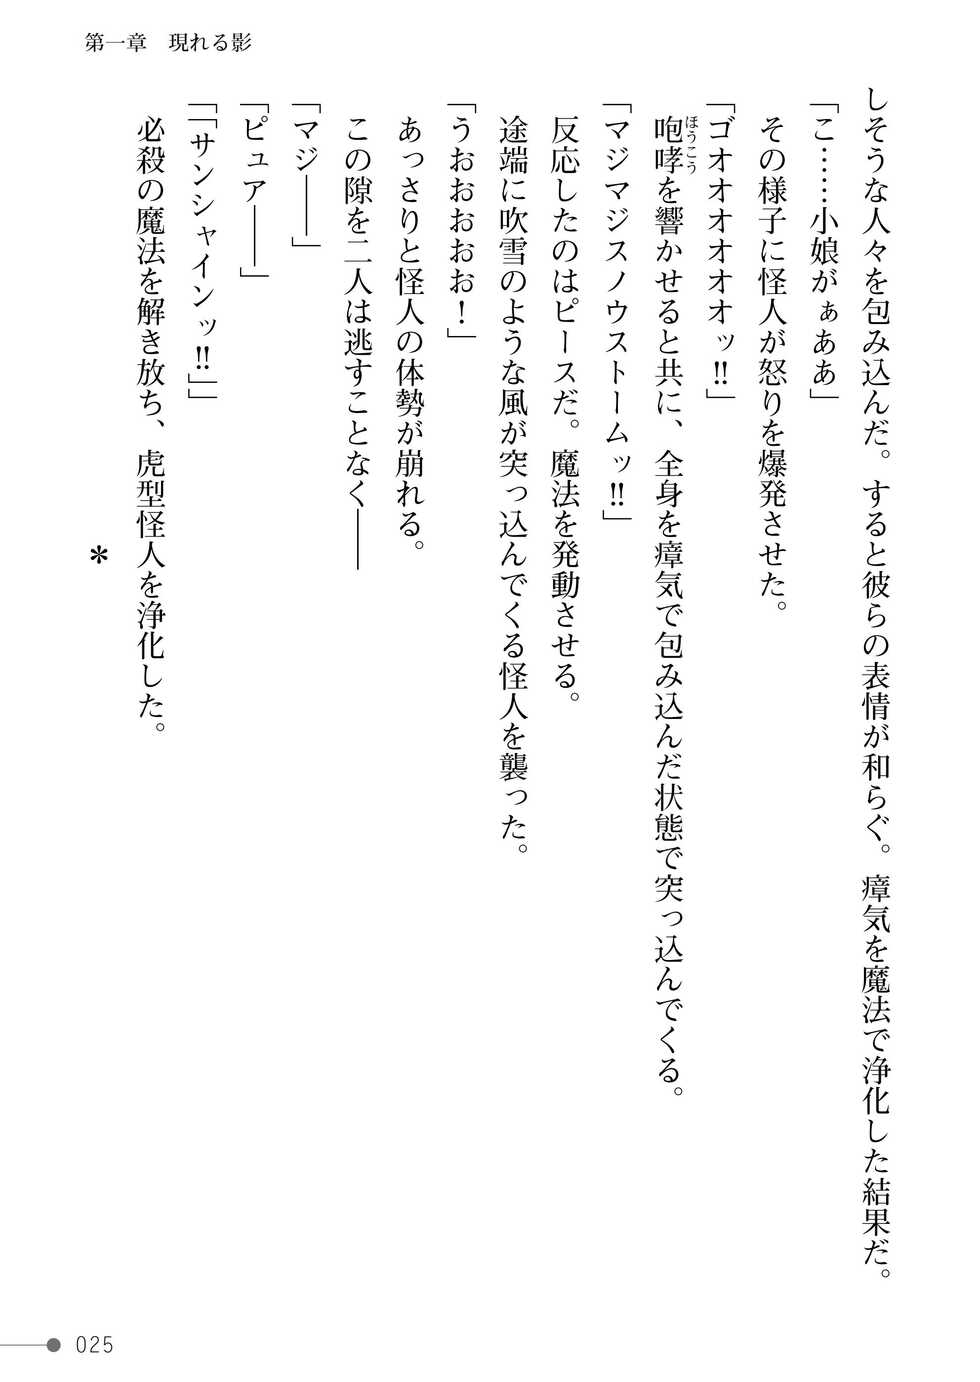 第一章　現れる影
しそうな人々を包み込んだ。すると彼らの表情が和らぐ。瘴気を魔法で浄化した結果だ。
「こ……小娘がぁああ」
その様子に怪人が怒りを爆発させた。
「ゴオオオオオオッ!!」
咆哮を響かせると共に、全身を瘴気で包み込んだ状態で突っ込んでくる。
ほうこう
「マジマジスノウストームッ!!」
反応したのはピースだ。魔法を発動させる。
途端に吹雪のような風が突っ込んでくる怪人を襲った。
「うおおおおお！」
あっさりと怪人の体勢が崩れる。
この隙を二人は逃すことなく――
「マジ――」
「ピュア――」
「「サンシャインッ!!」」
必殺の魔法を解き放ち、虎型怪人を浄化した。
＊
025